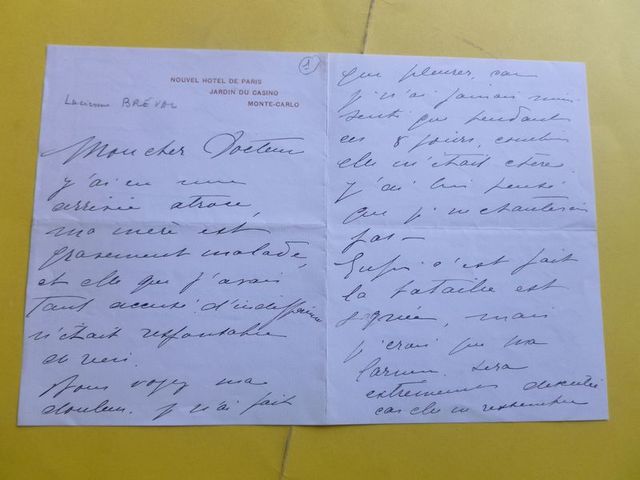 1
NOUVEL HOTEL DE PARIS
JARDIN DU CASINO
MONTE-CARLO
Lucienne BRÉVAL
Mon cher Docteur
j'ai eu une
arrivée atroce,
ma mère est
gravement malade,
et elle que j'avais
tant accusé d'indifférence
n'était responsable
en rien.
Vous voyez ma
douleur. Je n'ai fait
que pleurer, car
je n'ai jamais mieux
senti que pendant
ces 8 jours, combien
elle m'était chère.
J'ai bien pensé
que je ne chanterais
pas —
Enfin c'est fait
la bataille est
gagnée, mais
je crois que ma
Carmen sera
extrêmement discutée
car elle ne ressemble